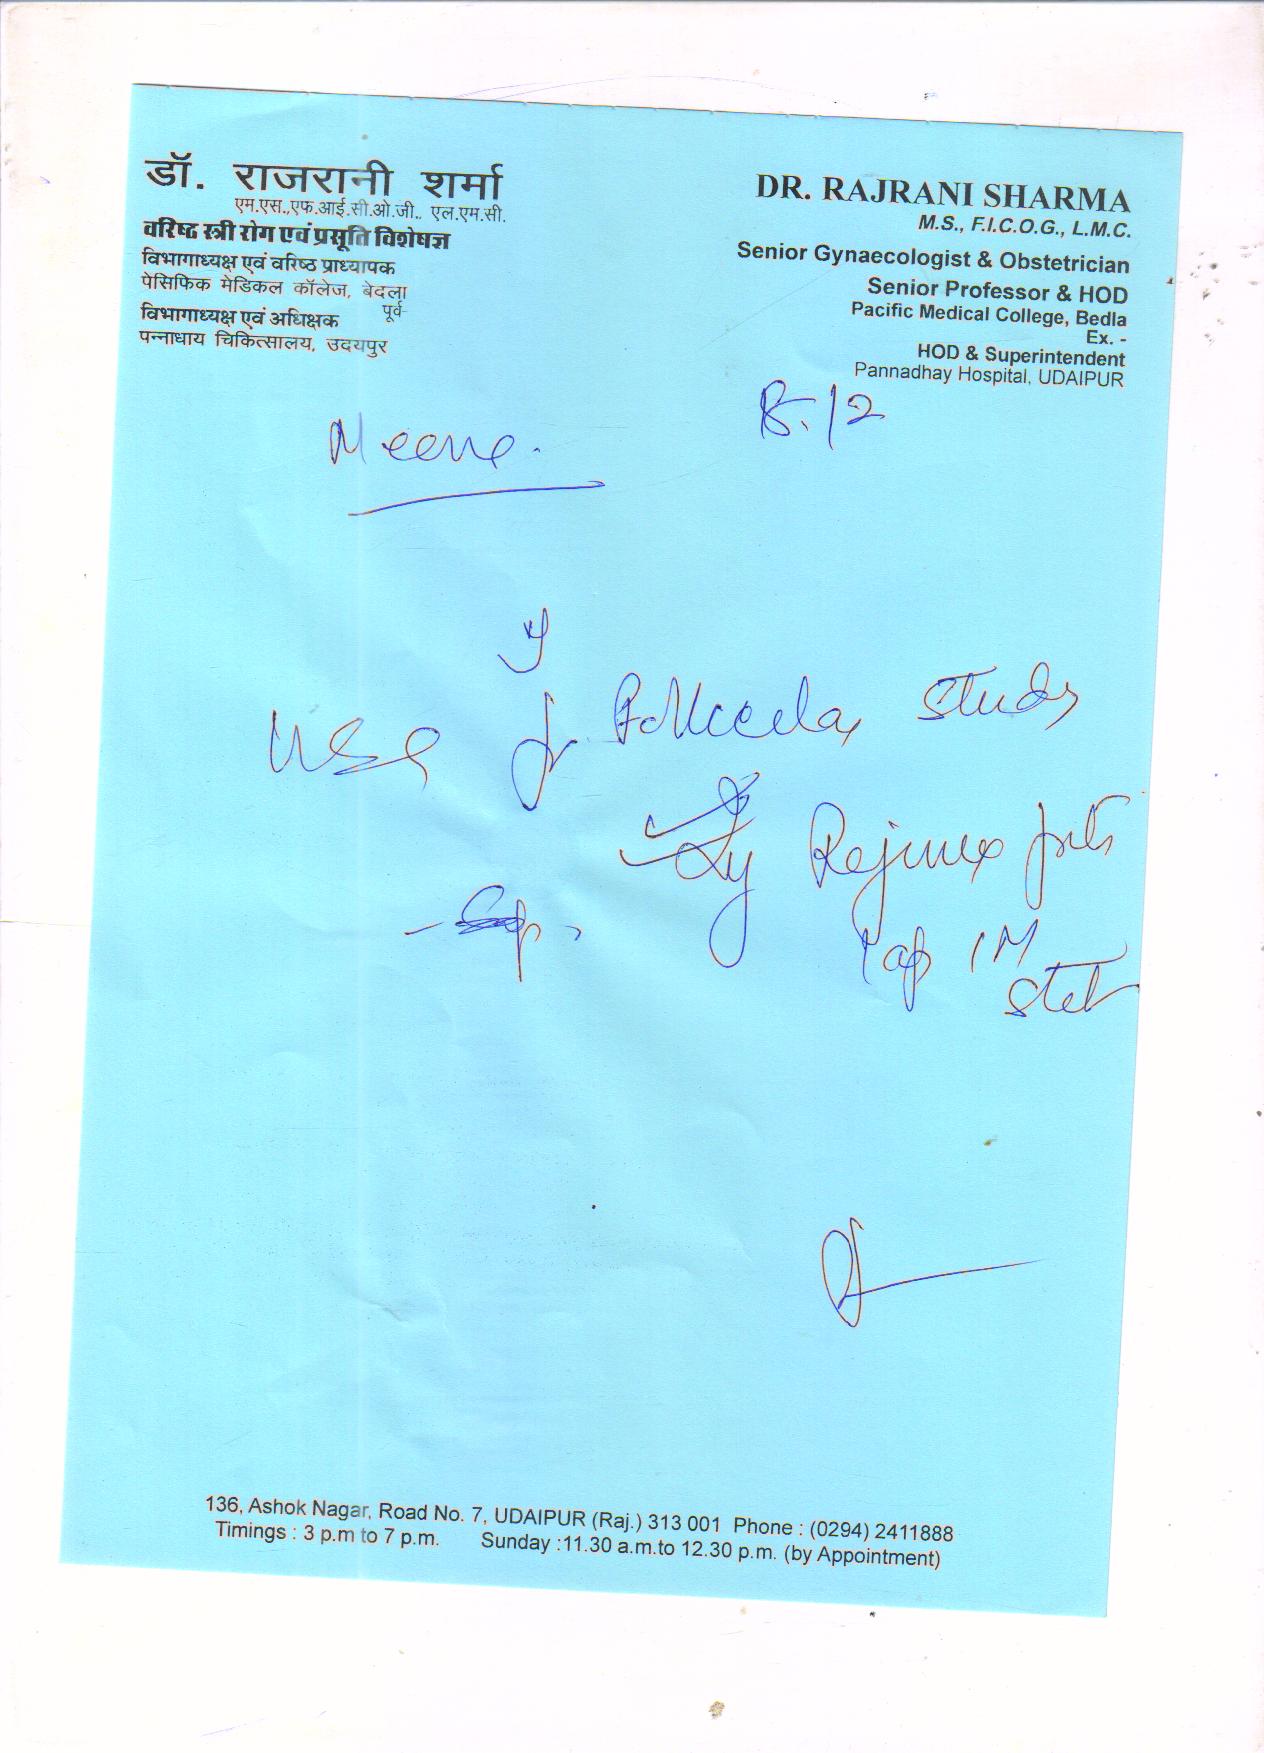 डॉ. राजरानी शर्मा
एम.एस.,एफ.आई.सी.ओ.जी., एल.एम.सी.
वरिष्ठ स्त्री रोग एवं प्रसूति विशेषज्ञ
विभागाध्यक्ष एवं वरिष्ठ प्राध्यापक
पेसिफिक मेडिकल कॉलेज, बेदला
पूर्व-
विभागाध्यक्ष एवं अधिक्षक
पन्नाधाय चिकित्सालय, उदयपुर
DR. RAJRANI SHARMA
M.S., F.I.C.O.G., L.M.C.
Senior Gynaecologist & Obstetrician
Senior Professor & HOD
Pacific Medical College, Bedla
Ex. -
HOD & Superintendent
Pannadhay Hospital, UDAIPUR
USG for study
IM
Stat
136, Ashok Nagar, Road No. 7, UDAIPUR (Raj.) 313 001 Phone : (0294) 2411888
Timings : 3 p.m to 7 p.m. Sunday :11.30 a.m.to 12.30 p.m. (by Appointment)